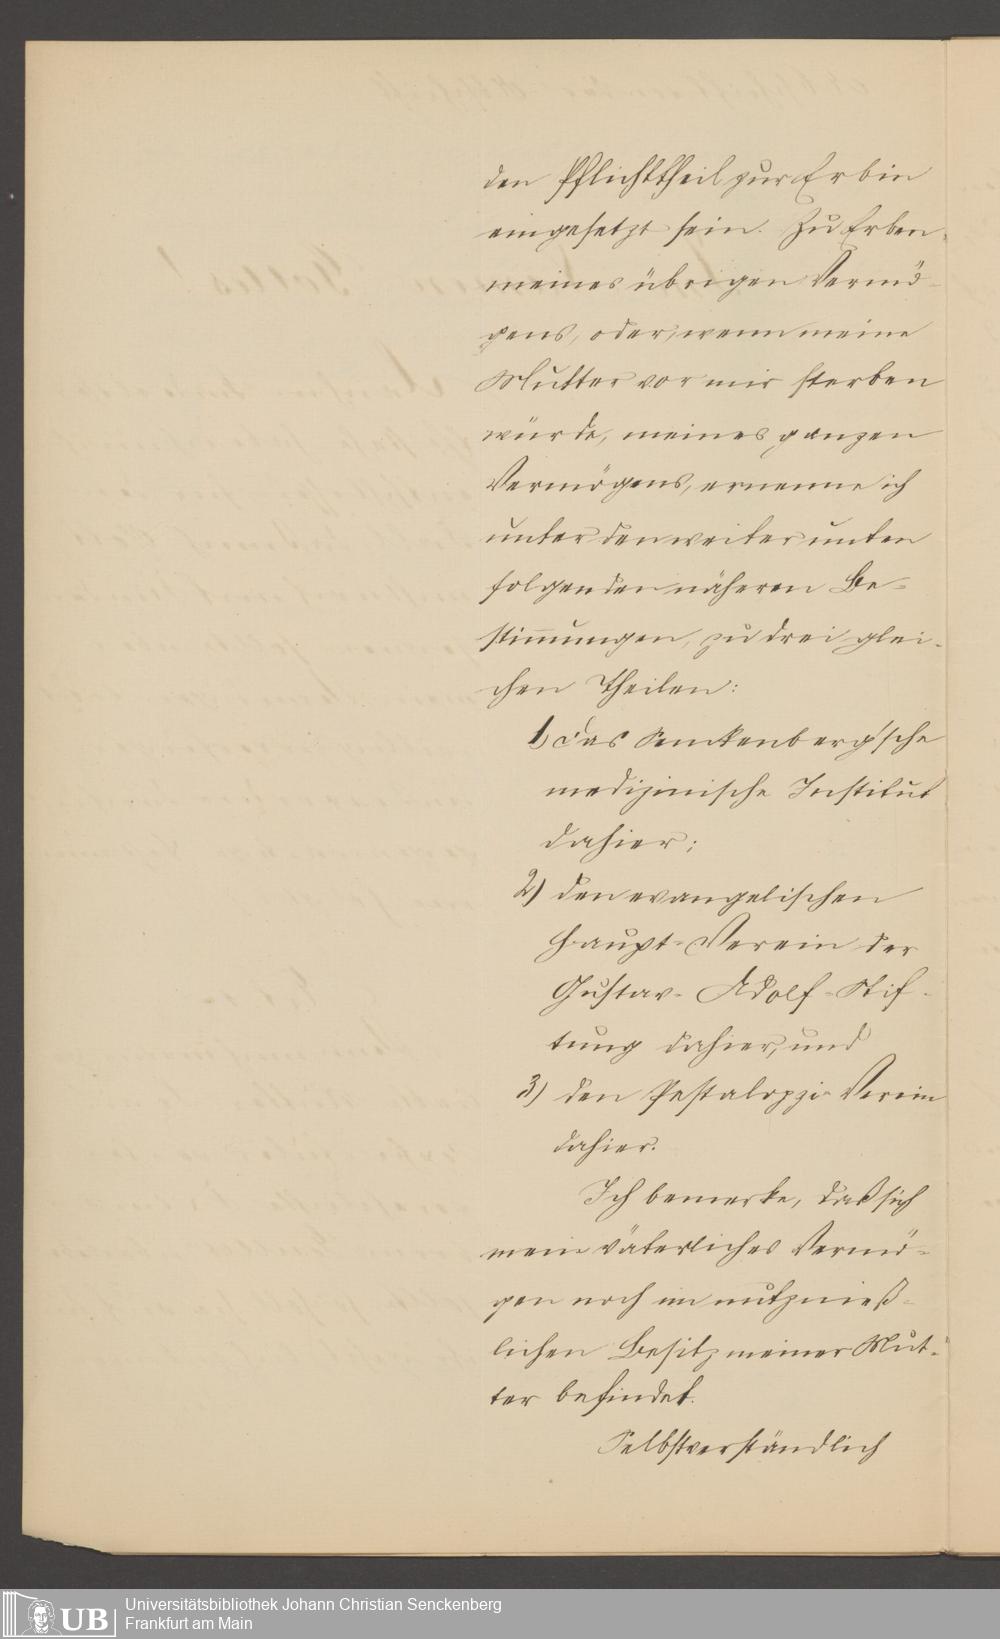 den Pflichttheil zur Erbin
eingesetzt sein. Zu Erben
meines übrigen Vermö-
gens, oder, wenn meine
Mutter vor mir sterben
würde, meines ganzen
Vermögens, ernenne ich
unter den weiter unten
folgenden näheren Be-
stimmungen, zu drei glei-
chen Theilen:
1) das Senckenberg'sche
medizinische Institut
dahier;
2) den evangelischen
Haupt-Verein der
Gustav-Adolf-Stif-
tung dahier, und
3) den Pestalozzi-Verein
dahier.
Ich bemerke, daß sich
mein väterliches Vermö-
gen noch im nutznieß-
lichen Besitz meiner Mut-
ter befindet.
Selbstverständlich
UB
Universitätsbibliothek Johann Christian Senckenberg
Frankfurt am Main